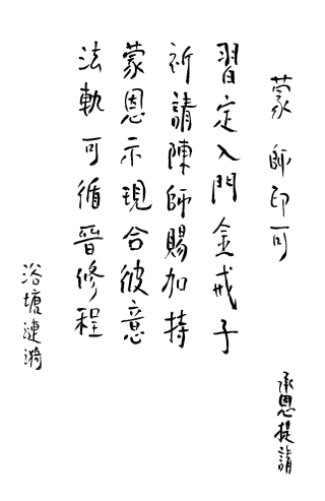 蒙 師印可
習定入門金戒子
祈請陳師賜加持
蒙恩示現合彼意
法軌可循晉修程
浴塘漣漪
承恩提請